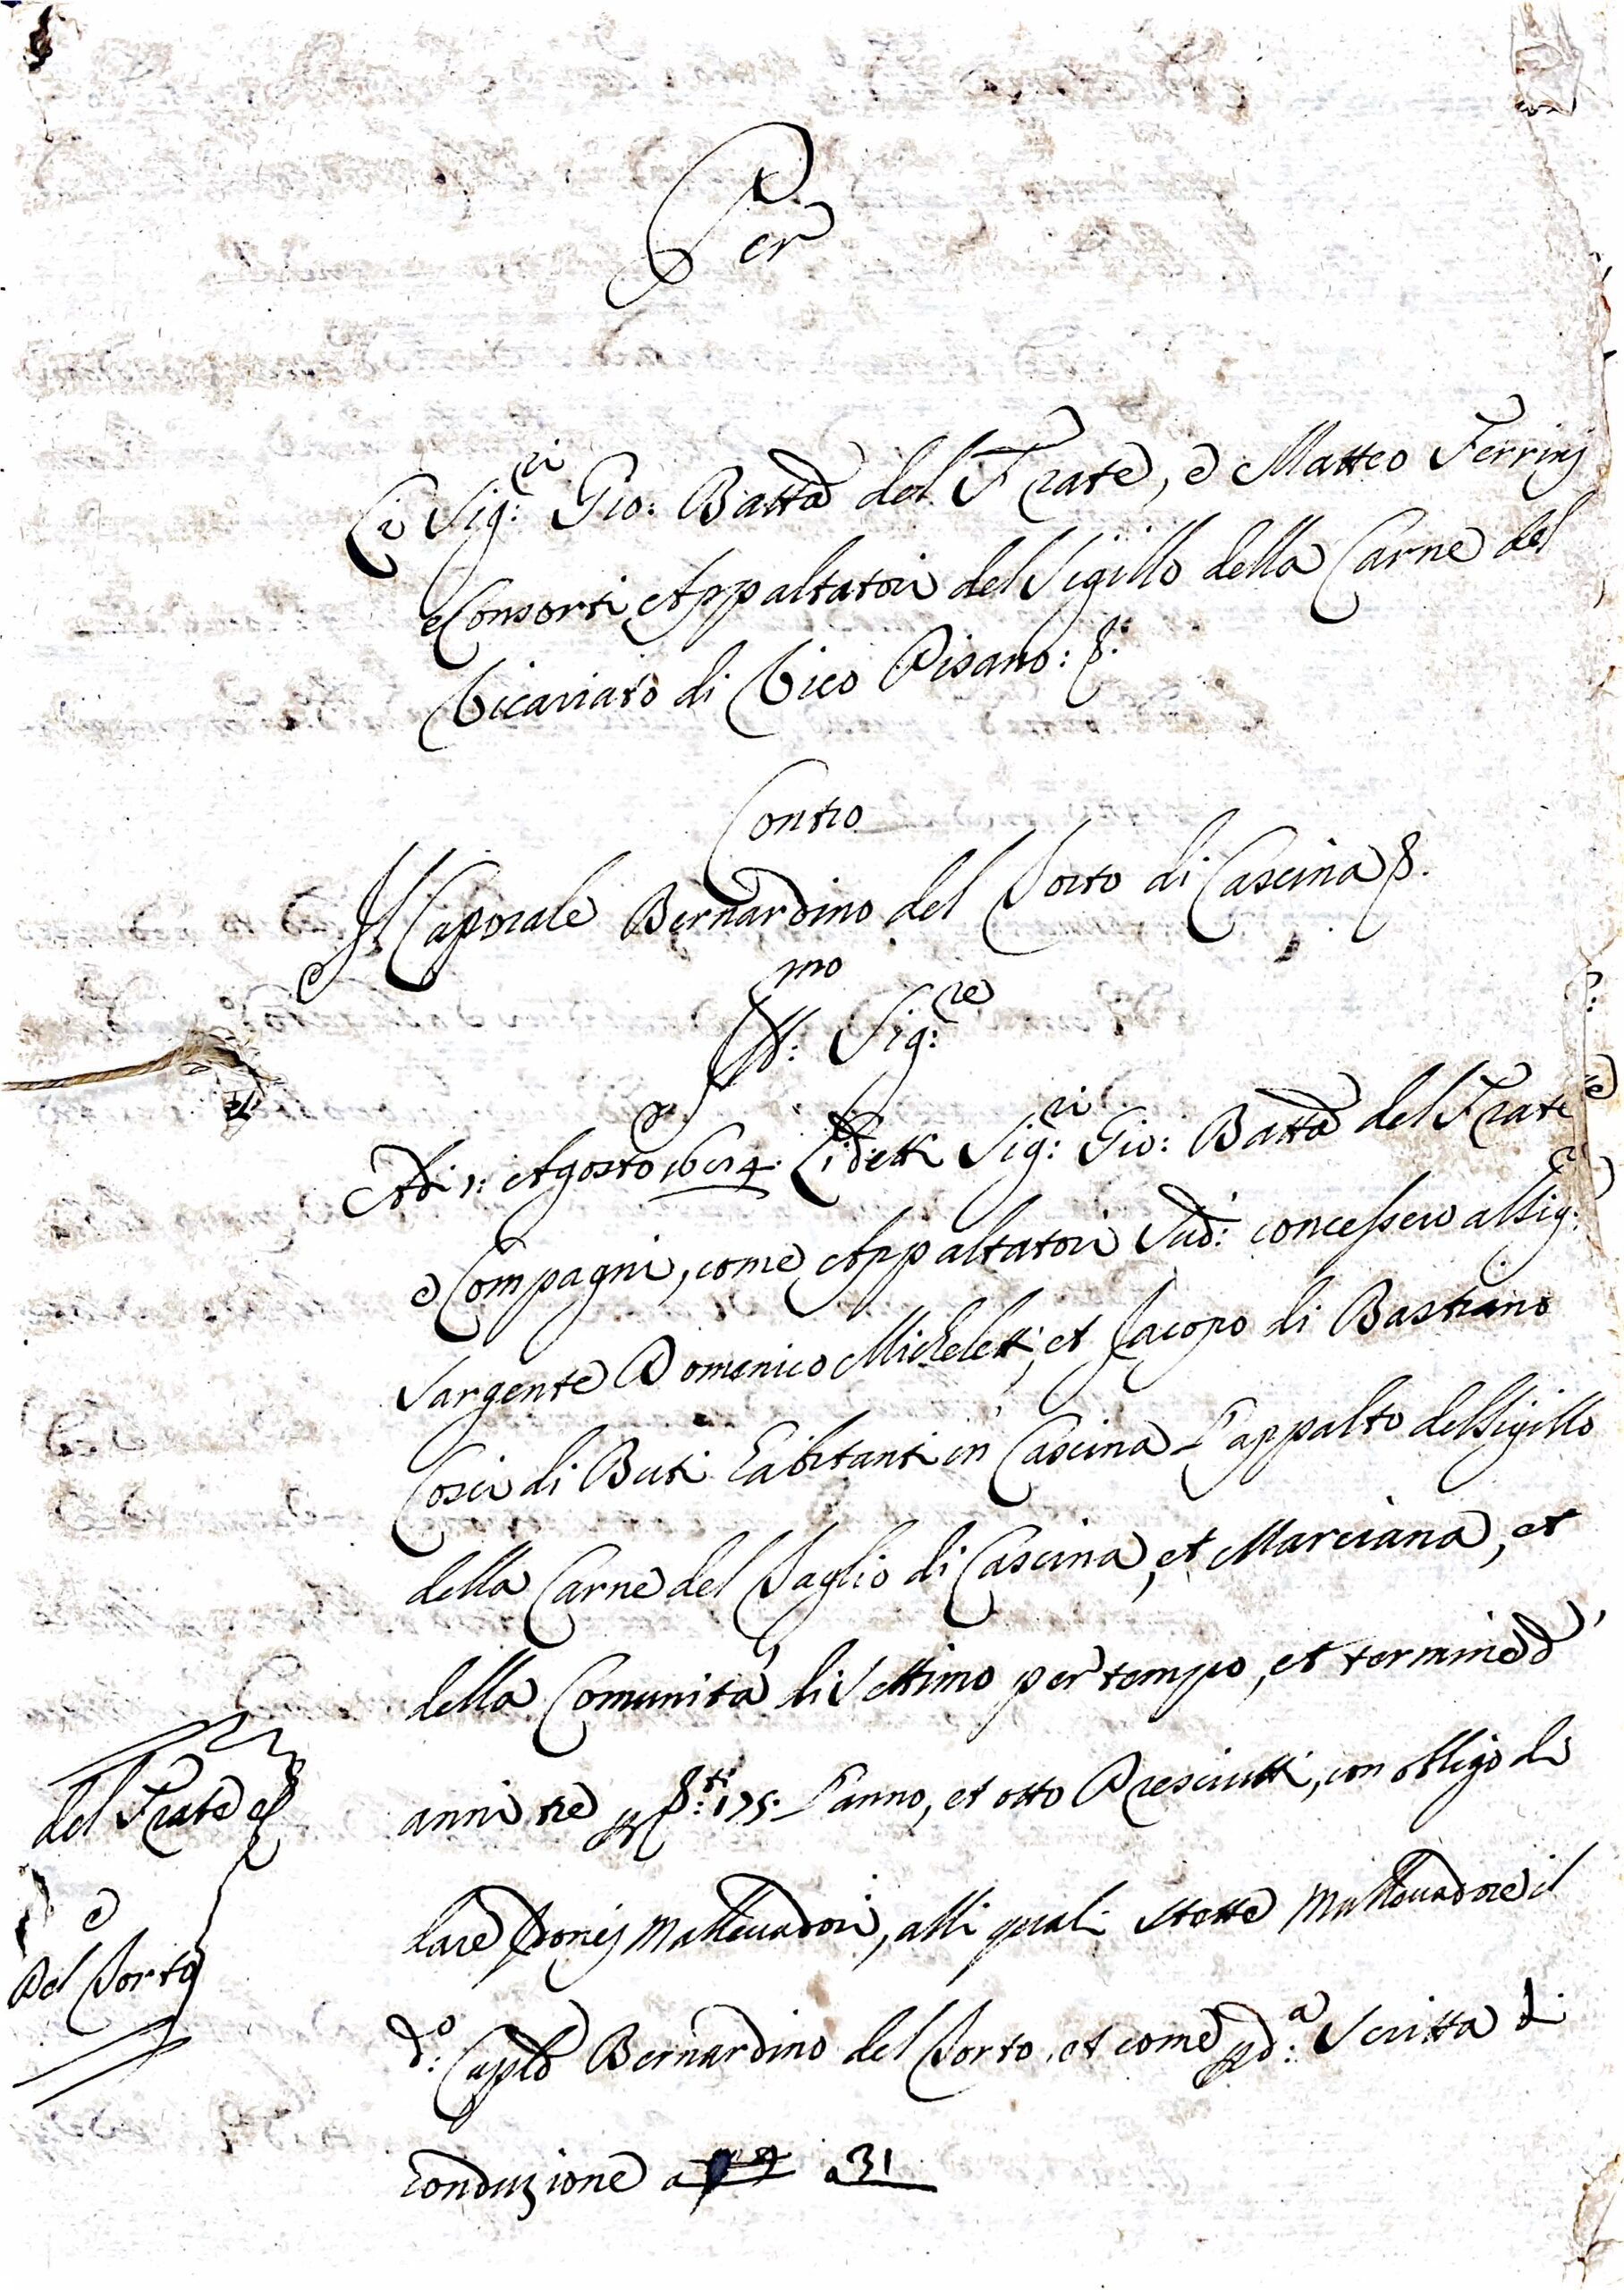 Per
Li Sig:ri Gio: Batta del Frate, e Matteo Ferrinj
e Consorti Appaltatori del Sigillo della Carne del
Vicariato di Vico Pisano:
Contro
Il Caporale Bernardino del Porto di Cascina
Ill:mo Sig:re
Adi p: Agosto Li detti Sig:ri Gio: Batta del Frate
e Compagni, come Appaltatori Sud: concessero al Sig:
Sargente Domenico Micheletti, et Jacopo di Bastiano
Cosci di Buti habitanti in Cascina l'appalto del Sigillo
della Carne del Paglio di Cascina, et Marciana, et
della Comunità di Settimo per tempo, et termine d'
anni tre p 175. l'anno, et otto Presciutti, con obligo di
dare Mallevadori, alli quali stette Mallevadore il
d:o Caple Bernardino del Porto, et come p d:a Scritta di
conduzione a a 31
del Frate
e
Del Porto